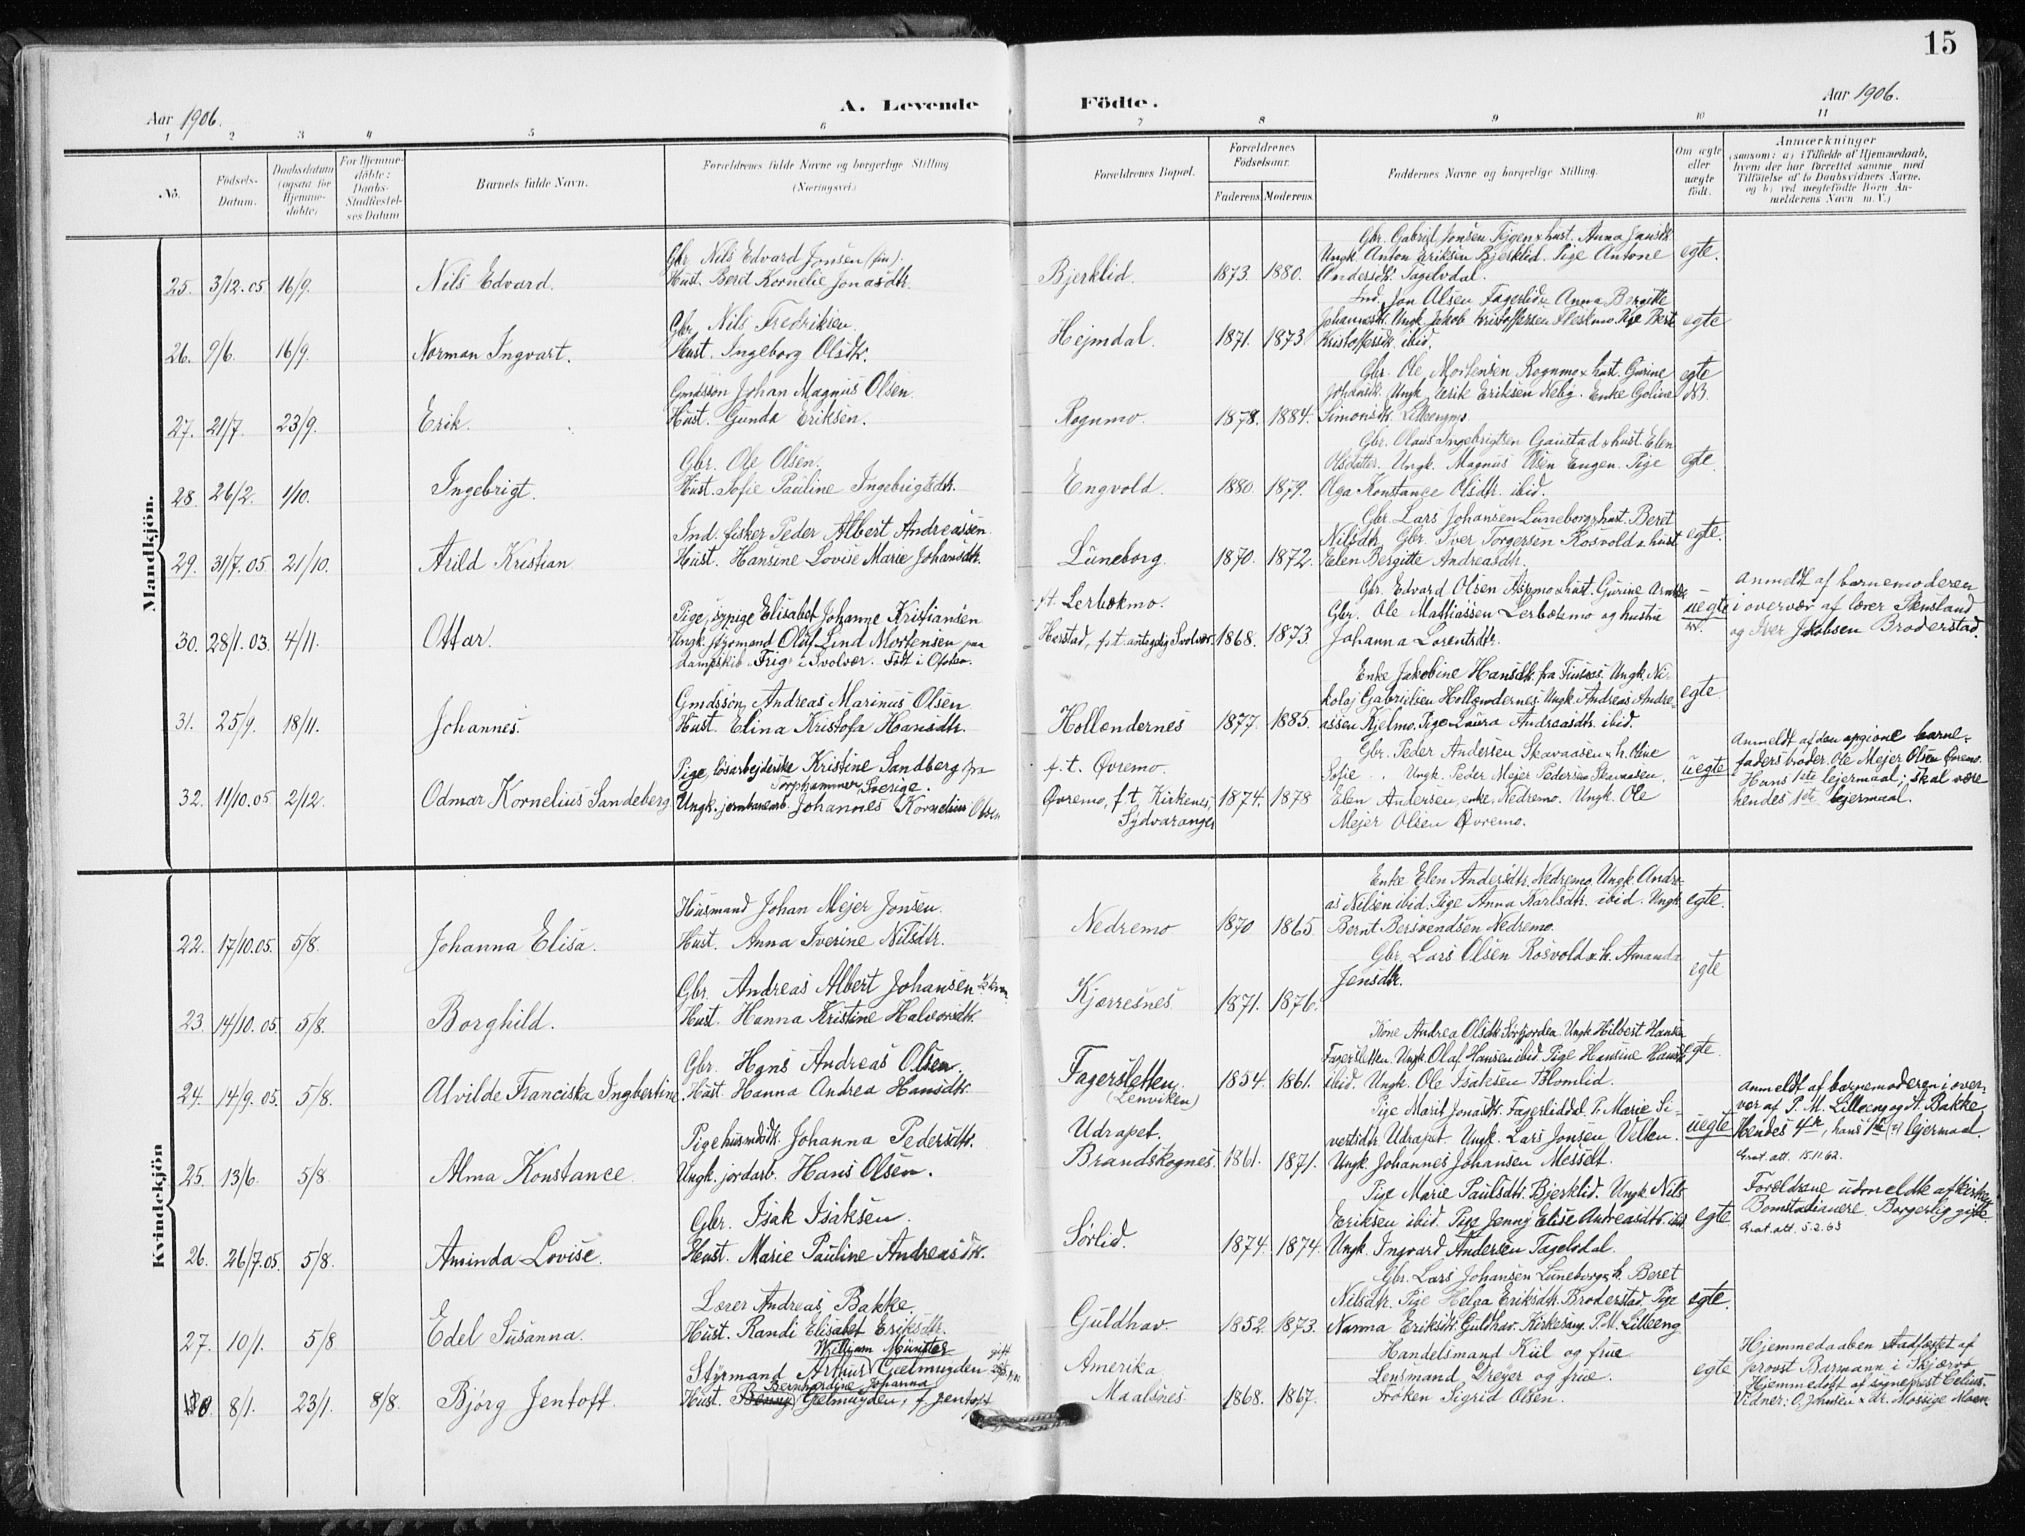 15
Aar 1906.
A. Levende Födte.
Aar 1906.
1 2 3 4 5 6 7 8 9 10 11
No.
Födsels-Datum.
Daabsdatum (ogsaa for Hjemmedöbte)
For Hjemmedöbte: Daabs-Stadfæstelses Datum
Barnets fulde Navn.
Forældrenes fulde Navne og borgerlige Stilling (Næringsvei.)
Forældrenes Bopæl.
Forældrenes Födselsaar.
Faderens Moderens
Faddernes Navne og borgerlige Stilling.
Om ægte eller uægte födt.
Anmærkninger
(saasom: a) i Tilfælde af Hjemmedaab, hvem der har forrettet samme med Tilföielse af to Daabsvidners Navne, og b) ved uægtefödte Börn Anmelderens Navn m. V.)
Mandkjön.
25. 3/12.05 16/9. Nils Edvard.
Gbr. Nils Edvard Jonsen (fin).
Hust. Beret Kornelie Jonasdtr.
Bjerklid. 1873. 1880.
Gbr. Gabriel Jonsen & hust. Anna
Ungk. Anton Eriksen Bjerklid. Pige Antone
Andersdtr. Tagelvdal.
egte.
26. 9/6. 16/9. Norman Ingvart.
Gbr. Nils Fredriksen.
Hust. Ingeborg Olsdtr.
Hejmdal. 1871. 1873
Ind. Jon Olsen Fagerlid & Anna Bergitte
Johannesdtr. Ungk. Jakob Kristoffersen Pige Beret
Kristoffersdtr. ibid.
egte
27. 21/7. 23/9. Erik.
Gmdssøn Johan Magnus Olsen
Hust. Gunda Eriksen.
Rognmo. 1878. 1884.
Gbr. Ole Mortensen Rognmo & hust. Gurine
Johansdtr. Ungk. Erik Eriksen Enke Goline
Simonsdtr.
egte
28. 26/2. 1/10. Ingebrigt.
Gbr. Ole Olsen.
Hust. Sofie Pauline Ingebrigtsdtr.
Engvold. 1880. 1879.
Gbr. Olaus Ingebrigtsen Gaustad & hust. Elen
Olsdatter. Ungk. Magnus Olsen Engen. Pige
Olga Konstance Olsdtr. ibid.
egte.
29. 31/7.05 21/10. Arild Kristian
Ind. fisker Peder Albert Andreassen
Hust. Hansine Lovise Marie Johansdtr.
Lüneborg. 1870. 1872.
Gbr. Lars Johansen Luneborg & hust. Beret
Nilsdtr. Gbr. Iver Torgersen Rosvold & hust
Elen Bergitte Andreasdtr.
egte.
30. 28/1.03. 4/11. Ottar.
Pige, sypige Elisabet Johanne Kristiansen
Ungk. styrmand Oluf Lind Mortensen paa
dampskib "Frig" i Svolvær. Født i Ofoten.
f.t. Lerbækmo.
Harstad, f.t. antagelig Svolvær. 1868. 1873
Gbr. Edvard Olsen Aspmo & hust. Gurine
Gbr. Ole Mattiassen Lerbækmo og hustru
Johanna Lorentsdtr.
uegte
Anmeldt af barnemoderen
i overvær af lærer Skusland
og Iver Jakobsen Broderstad.
31. 25/9. 18/11. Johannes.
Gmdssøn Andreas Marinus Olsen
Hust. Elina Kristofa Hansdtr.
Hollendernes 1877. 1885.
Enke Jakobine Hansdtr. fra Finsæs. Ungk. Ni-
kolaj Gabrielsen Hollendernes. Ungk. Andreas Andre-
assen Kjelmo. Pige Laura Andreasdtr. ibid.
egte
32. 11/10.05 2/12. Odmar Kornelius Sandeberg
Pige, løsarbejderske Kristine Sandberg fra
Torphammer Sverige.
Ungk. jernbanearb. Johannes Kornelius Olsen
f.t. Øvremo.
Øvremo, f.t. Kirkenes,
Sydvaranger 1874. 1878
Gbr. Peder Andersen Skavaasen & h. Oline
Sofie Ungk. Peder Mejer Pedersen Skavaasen.
Elen Andersen, enke, Nedremo. Ungk. Ole
Mejer Olsen Øvremo.
uegte
Anmeldt af den opgivne barne-
faders broder Ole Mejer Olsen Øvremo.
Hans 1ste lejermaal; skal være
hendes 1ste lejermaal.
Kvindekjön
22. 17/10.05. 5/8. Johanna Elisa.
Husmand Johan Mejer Jonsen.
Hust. Anna Iverine Nilsdtr.
Nedremo 1870 1865
Enke Elen Andersdtr. Nedremo. Ungk. Andre-
as Nilsen ibid. Pige Anna Karlsdtr. ibid. Ungk.
Bernt Bersvendsen Nedremo.
egte.
23. 14/10.05. 5/8. Borghild.
Gbr. Andreas Albert Johansen
Hust. Hanna Kristine Halvorsdtr.
Kjærresnes 1871. 1876.
Gbr. Lars Olsen Rosvold & h. Amanda
Jensdtr.
egte
24. 14/9.05. 5/8. Alvilde Franciska Ingbertine
Gbr. Hans Andreas Olsen.
Hust. Hanna Andrea Hansdtr.
Fagersletten.
(Lenviken) 1854. 1861.
Kone Andrea Olsdtr. Sørfjorden. Ungk. Hilbert Hansen
Fagersletten. Ungk. Olaf Hansen ibid. Pige Hansine Hansdtr
ibid. Ungk. Ole Isaksen Blomlid.
egte.
25. 13/6. 5/8. Alma Konstance.
Pige husmdsdtr. Johanna Pedersdtr.
Ungk. jordarb. Hans Olsen.
Udrapet.
Brandskognes. 1861. 1871.
Pige Marit Jonasdtr. Fagerliddal. P. Marie Si-
vertsdtr. Udrapet. Ungk. Lars Jonsen Velten.
Ungk. Johannes Johansen Messelt.
uegte
Anmeldt af barnemoderen i over-
vær af P. M. Lilleeng og A. Bakke
Hendes 4de, hans 1ste (?) lejermaal.
Grat. att. 15.11.62.
26. 26/7.05. 5/8. Aminda Lovise.
Gbr. Isak Isaksen.
Hust. Marie Pauline Andreasdtr.
Sørlid. 1874. 1874.
Pige Marie Paulsdtr. Bjerklid. Ungk. Nils
Eriksen ibid. Pige Jenny Elise Andreasdtr. ibid.
Ungk. Ingvard Andersen Tagelvdal.
egte
Forældrene udmeldte af kirken
Borgerlig gifte
Grat. att. 5.2.63
27. 10/1. 5/8. Edel Susanna.
Lærer Andreas Bakke.
Hust. Randi Elisabet Eriksdtr.
Guldhav. 1852. 1873.
Gbr. Lars Johansen Luneborg & h. Beret
Nilsdtr. Pige Helga Eriksdtr. Broderstad. Pige
Nanna Eriksdtr. Guldhav. Kirkesang. P.M. Lilleeng
egte.
28. 8/1. 23/1. 8/8. Bjørg Jentoft.
William Munster
Styrmand Arthur Geelmuyden gift
Bernhardine Johanna
Hust. Benny Geelmuyden, f. Jentoft
Amerika
Maalsnes. 1868. 1867.
Handelsmand Kiil og frue
Lensmand Dreyer og frue.
Frøken Sigrid Olsen.
egte
Hjemmedaaben stadfæstet af
provst Barmann i Skjærvø
Hjemmedøbt af sogneprest
Vidner: O. Johnsen & dr. Mossige Moen